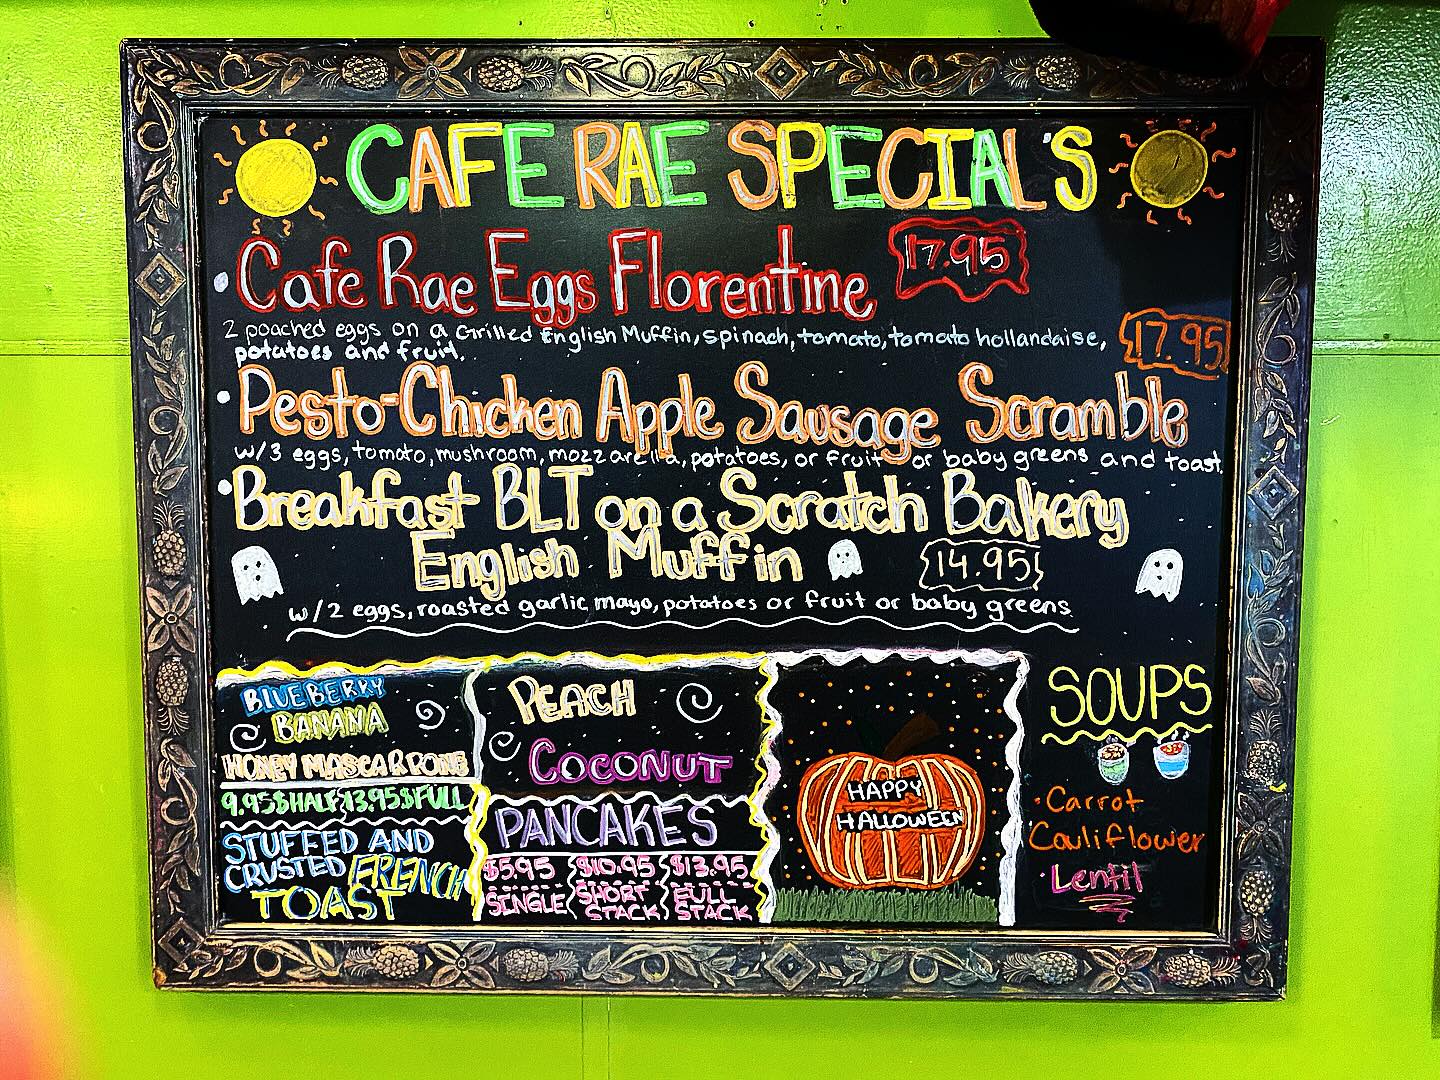 CAFE RAE SPECIAL'S
Cafe Rae Eggs Florentine 17.95
2 poached eggs on a Grilled English Muffin, spinach, tomato, tomato hollandaise,
potatoes and fruit.
17.95
Pesto-Chicken Apple Sausage Scramble
w/3 eggs, tomato, mushroom, mozzarella, potatoes, or fruit or baby greens and toast.
Breakfast BLT on a Scratch Bakery
English Muffin 14.95
w/2 eggs, roasted garlic mayo, potatoes or fruit or baby greens
BLUEBERRY
BANANA
HONEY MASCARPONE
9.95$HALF 13.95$FULL
STUFFED AND
CRUSTED FRENCH
TOAST
PEACH
COCONUT
PANCAKES
$5.95 $10.95 $13.95
SINGLE SHORT STACK FULL STACK
HAPPY
HALLOWEEN
SOUPS
Carrot
Cauliflower
Lentil